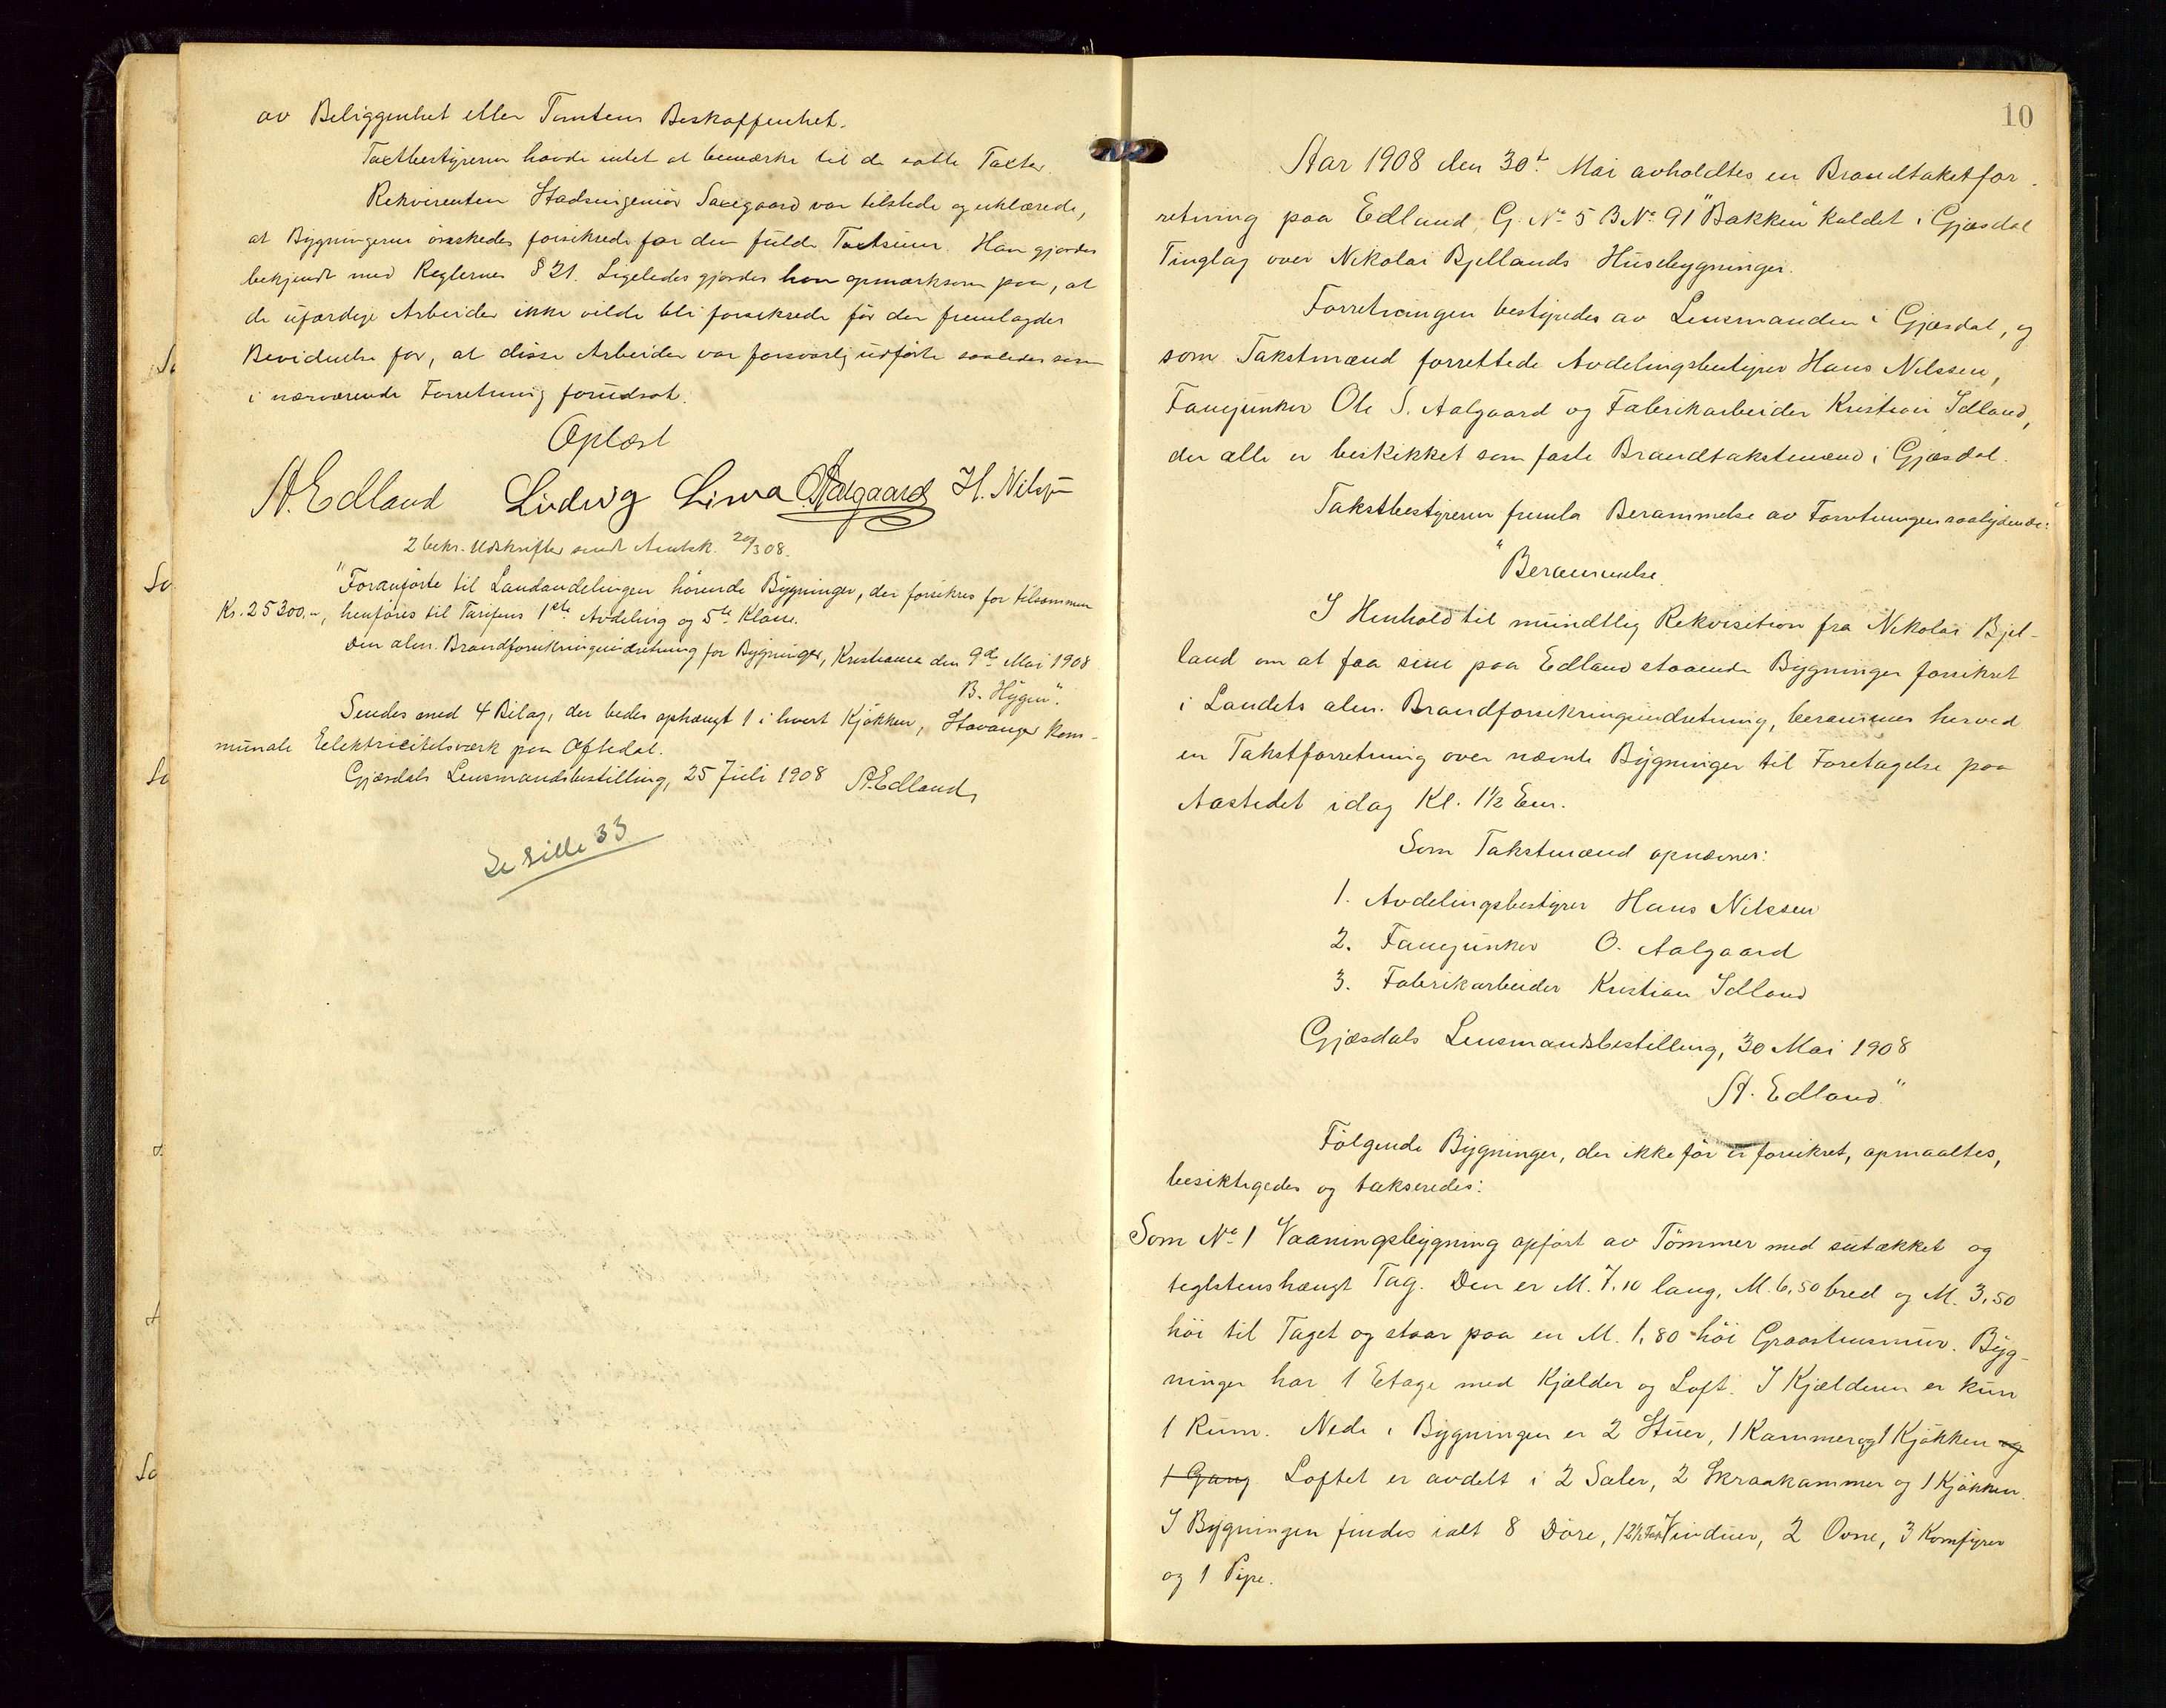 av Beliggenhet eller Tomtens Beskaffenhet.
Taxtbestyreren havde intet at bemærke til de satte Taxter.
Rekvirenten Stadsingeniør Saxegaard var tilstede og erklærede,
at Bygningerne ønskedes forsikrede for den fulde Taxtsum. Han gjordes
bekjendt med Reglernes § 21. Ligeledes gjordes han opmærksom paa, at
de ufærdige Arbeider ikke vilde bli forsikrede før der fremlagdes
Bevidnelse for, at disse Arbeider var forsvarlig udførte saaledes som
i nærværende Forretning forudsat.
Oplæst
A. Edland Ludvig Lima O. Aalgaard H. Nilssen
2 bekr. Udskrifter sendt Amtsk. 20/3 08.
"Foranførte til Landavdelingen hørende Bygninger, der forsikres for tilsammen
Kr. 25300,-, henføres til Tarifens 1ste Avdeling og 5te Klasse.
Den alm. Brandforsikringsindretning for Bygninger, Kristiania den 9de Mai 1908
B. Hygen".
Sendes med 4 Bilag, der bedes ophængt 1 i hvert Kjøkken, Stavanger kom-
munale Elektricitetsværk paa Oftedal.
Gjæsdals Lensmandsbestilling, 25 Juli 1908 A. Edland
Se side 33
10
Aar 1908 den 30t Mai avholdtes en Brandtakstfor-
retning paa Edland, G. No 5 B No 91 "Bakken" kaldet i Gjæsdal
Tinglag over Nikolai Bjellands Husebygninger.
Forretningen bestyredes av Lensmanden i Gjæsdal, og
som Takstmænd forrettede Avdelingsbestyrer Hans Nilssen,
Fanejunker Ole S. Aalgaard og Fabrikarbeider Kristian Idland,
der alle er beskikket som faste Brandtakstmænd i Gjæsdal.
Takstbestyreren fremla Berammelse av Forretningen saalydende:
"Berammelse.
I Henhold til mundtlig Rekvisition fra Nikolai Bjel-
land om at faa sine paa Edland staaende Bygninger forsikret
i Landets alm. Brandforsikringsindretning, berammes herved
en Takstforretning over nævnte Bygninger til Foretagelse paa
Aastedet idag Kl. 1½ Em.
Som Takstmænd opnævnes:
1. Avdelingsbestyrer Hans Nilssen
2. Fanejunker O. Aalgaard
3. Fabrikarbeider Kristian Idland
Gjæsdals Lensmandsbestilling, 30 Mai 1908
A. Edland."
Følgende Bygninger, der ikke før er forsikret, opmaaltes,
besiktigedes og takseredes:
Som No 1 Vaaningsbygning opført av Tømmer med sutækket og
teglstenshængt Tag. Den er M. 7,10 lang, M. 6,50 bred og M. 3,50
høi til Taget og staar paa en M. 1,80 høi Graastensmur. Byg-
ningen har 1 Etage med Kjælder og Loft. I Kjælderen er kun
1 Rum. Nede i Bygningen er 2 Stuer, 1 Kammer og 1 Kjøkken og
1 Gang Loftet er avdelt i 2 Saler, 2 Skraakammer og 1 Kjøkken.
I Bygningen findes ialt 8 Døre, 12½ Fag Vinduer, 2 Ovne, 3 Komfyrer
og 1 Pipe.